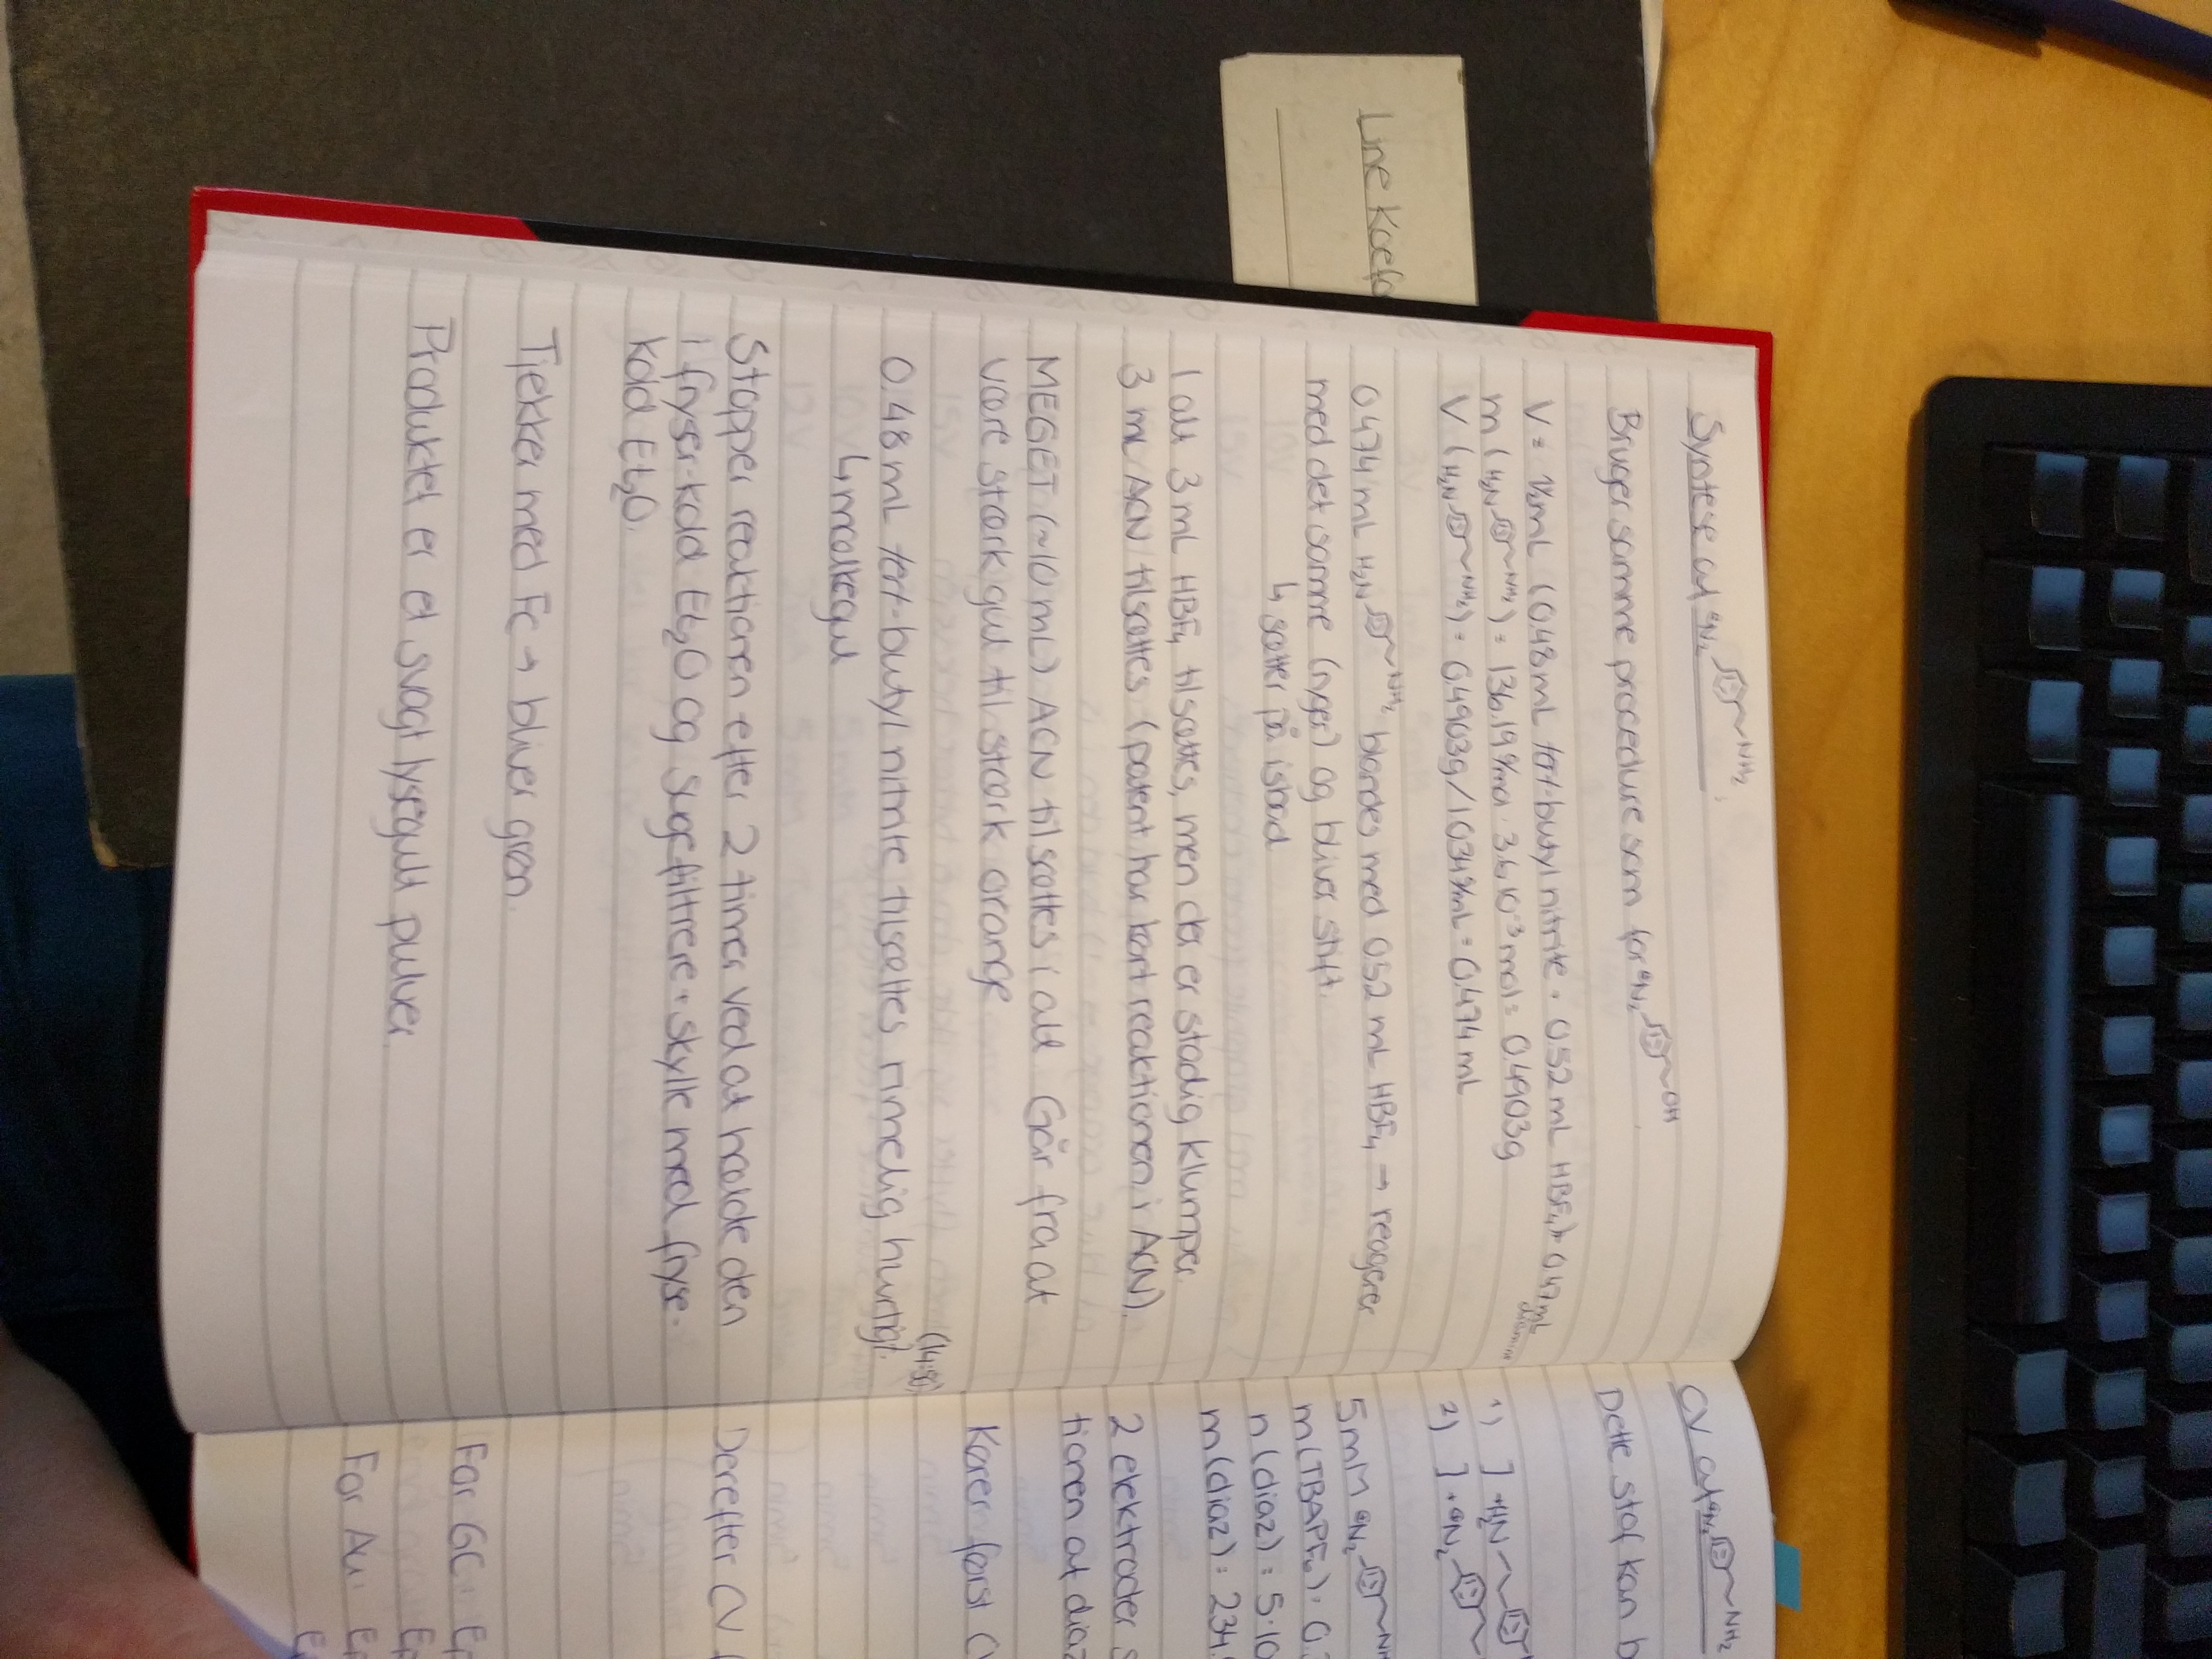 Line Koefo
Syntese af ⊕N₂ NH₂
Bruger samme procedure som for ⊕N₂ OH
V = ½mL (0.48mL tert-butyl nitrite + 0.52 mL HBF₄) = 0.47 mL
m (H₂N NH₂) = 136.19 g/mol · 3.6·10⁻³ mol = 0.4903g
V (H₂N NH₂) = 0.4903g / 1.034 g/mL = 0.474 mL
0.474 mL H₂N NH₂ blandes med 0.52 mL HBF₄ → reagerer
med det samme (ryger) og bliver stift.
↳ sætter på isbad
I alt 3 mL HBF₄ tilsættes, men der er stadig klumper.
3 mL ACN tilsættes (patent har kørt reaktionen i ACN).
MEGET (~10 mL) ACN tilsættes i alt. Går fra at
være stærk gul til stærk orange
(14:50)
0.48 mL tert-butyl nitrite tilsættes rimelig hurtigt.
↳ mælkegul
Stopper reaktionen efter 2 timer ved at hælde den
i fryser-kold Et₂O og sugefiltrere + skylle med fryse-
kold Et₂O.
Tjekker med Fc → bliver grøn.
Produktet er et svagt lysegult pulver.
CV af ⊕N₂ NH₂
Dette stof kan b
1) ] + H₂N
2) ] + ⊕N₂
5 mM ⊕N₂ NH
m(TBAPF₆) = 0.
n(diaz) = 5·10
m(diaz) = 234.
2 elektroder s
tionen af diaz
Kører først C
Derefter CV
For GC: Ep
Ep
For Au: Ep
E